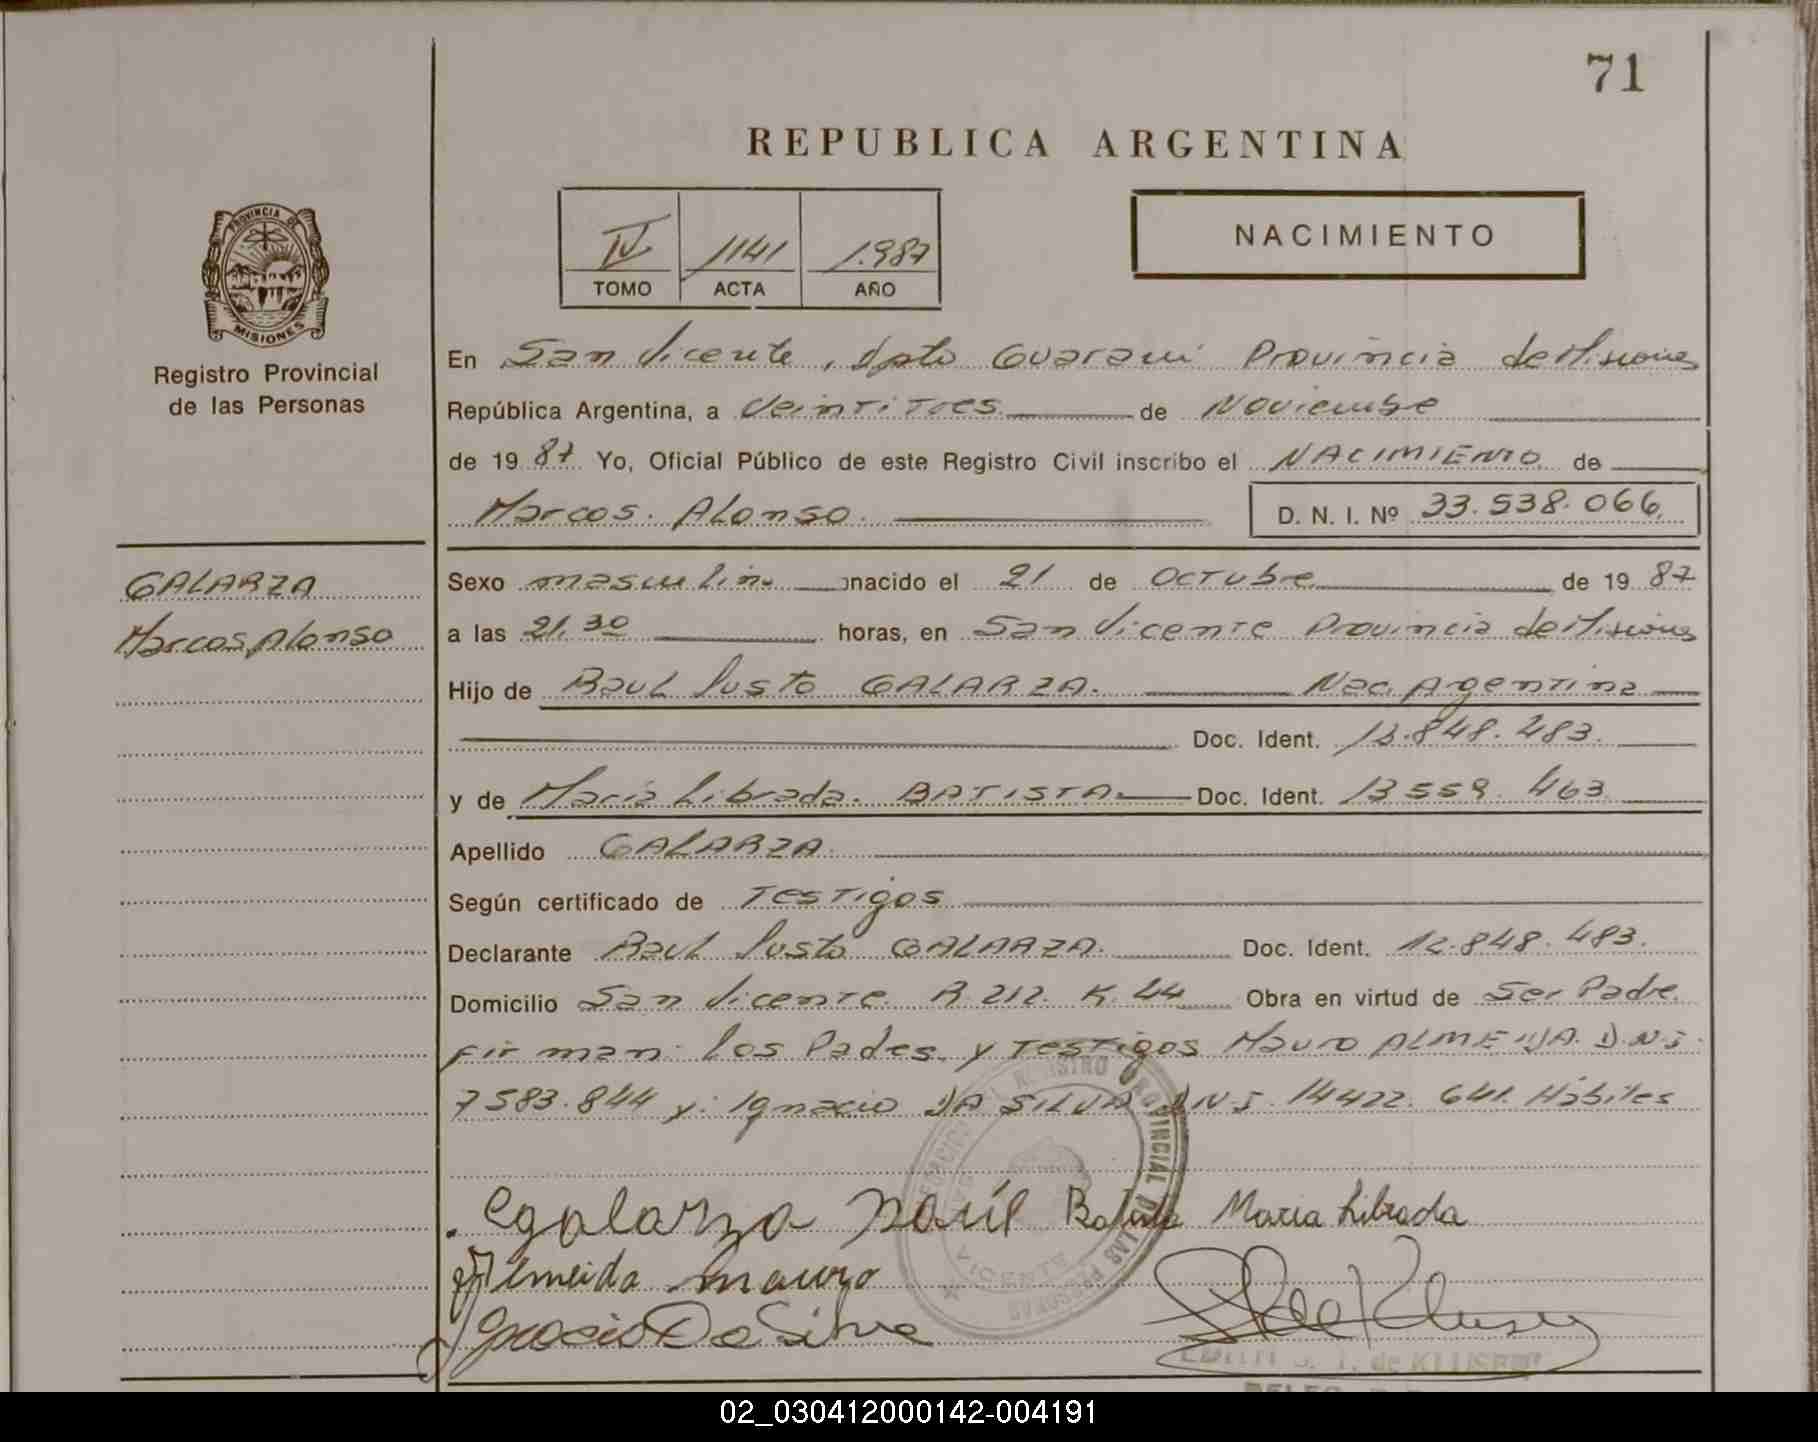 71
REPUBLICA ARGENTINA
IV 1141 1.987
TOMO ACTA AÑO
NACIMIENTO
PROVINCIA DE
MISIONES
Registro Provincial
de las Personas
En San Vicente, Dpto Guarani Provincia de Misiones
República Argentina, a Veintitres de Noviembre
de 19 87 Yo, Oficial Público de este Registro Civil inscribo el NACIMIENTO de
Marcos. Alonso.
D. N. I. Nº 33.538.066.
GALARZA
Marcos Alonso
Sexo masculino nacido el 21 de Octubre de 19 87
a las 21.30 horas, en San Vicente Provincia de Misiones
Hijo de Raul Justo GALARZA. Nac. Argentina
Doc. Ident. 12.848.483.
y de Maria Librada. BATISTA. Doc. Ident. 13 559. 463
Apellido GALARZA.
Según certificado de Testigos
Declarante Raul Justo GALARZA. Doc. Ident. 12.848.483.
Domicilio San Vicente. R. 212. K. 44 Obra en virtud de Ser Padre.
firman los Padres y Testigos Mauro ALMEIDA. D.N.I.
7583.844 y. Ignacio DA SILVA D.N.I. 14422.641. Hábiles
Galarza Raúl Batista Maria Librada
Almeida Mauro
Ignacio Da Silva
VICENTE
de KLUSENER
02_030412000142-004191